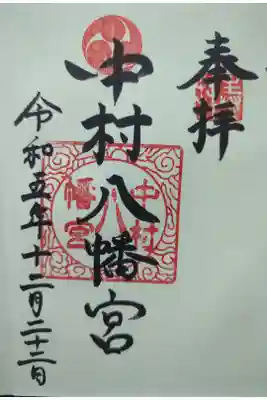 奉拝
中村八幡宮
中村
八
幡宮
令和五年十二月二十二日